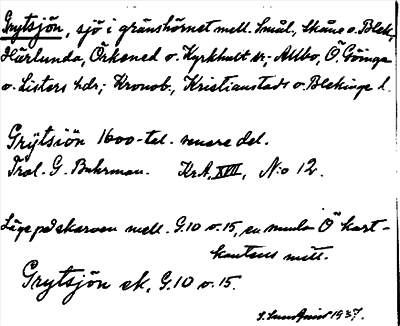 Grytsjön, sjö i gränshörnet mell. Smål, Skåne o. Blek,
Härlunda, Örkened o. Kyrkhult sr. Allbo, Ö Göinge
o. Listers hdr; Kronob., Kristianstads o. Blekinge l.
Grÿtsiön 1600-tal. senare del.
Tral. G. Buhrman. KrA, XVII, N:o 12.
Läge på skarven mell. G.10 o. 15, en mm fr. Ö kart-
kantens mitt.
Grytsjön ek. G.10 o. 15.
S. Lundqvist 1937.